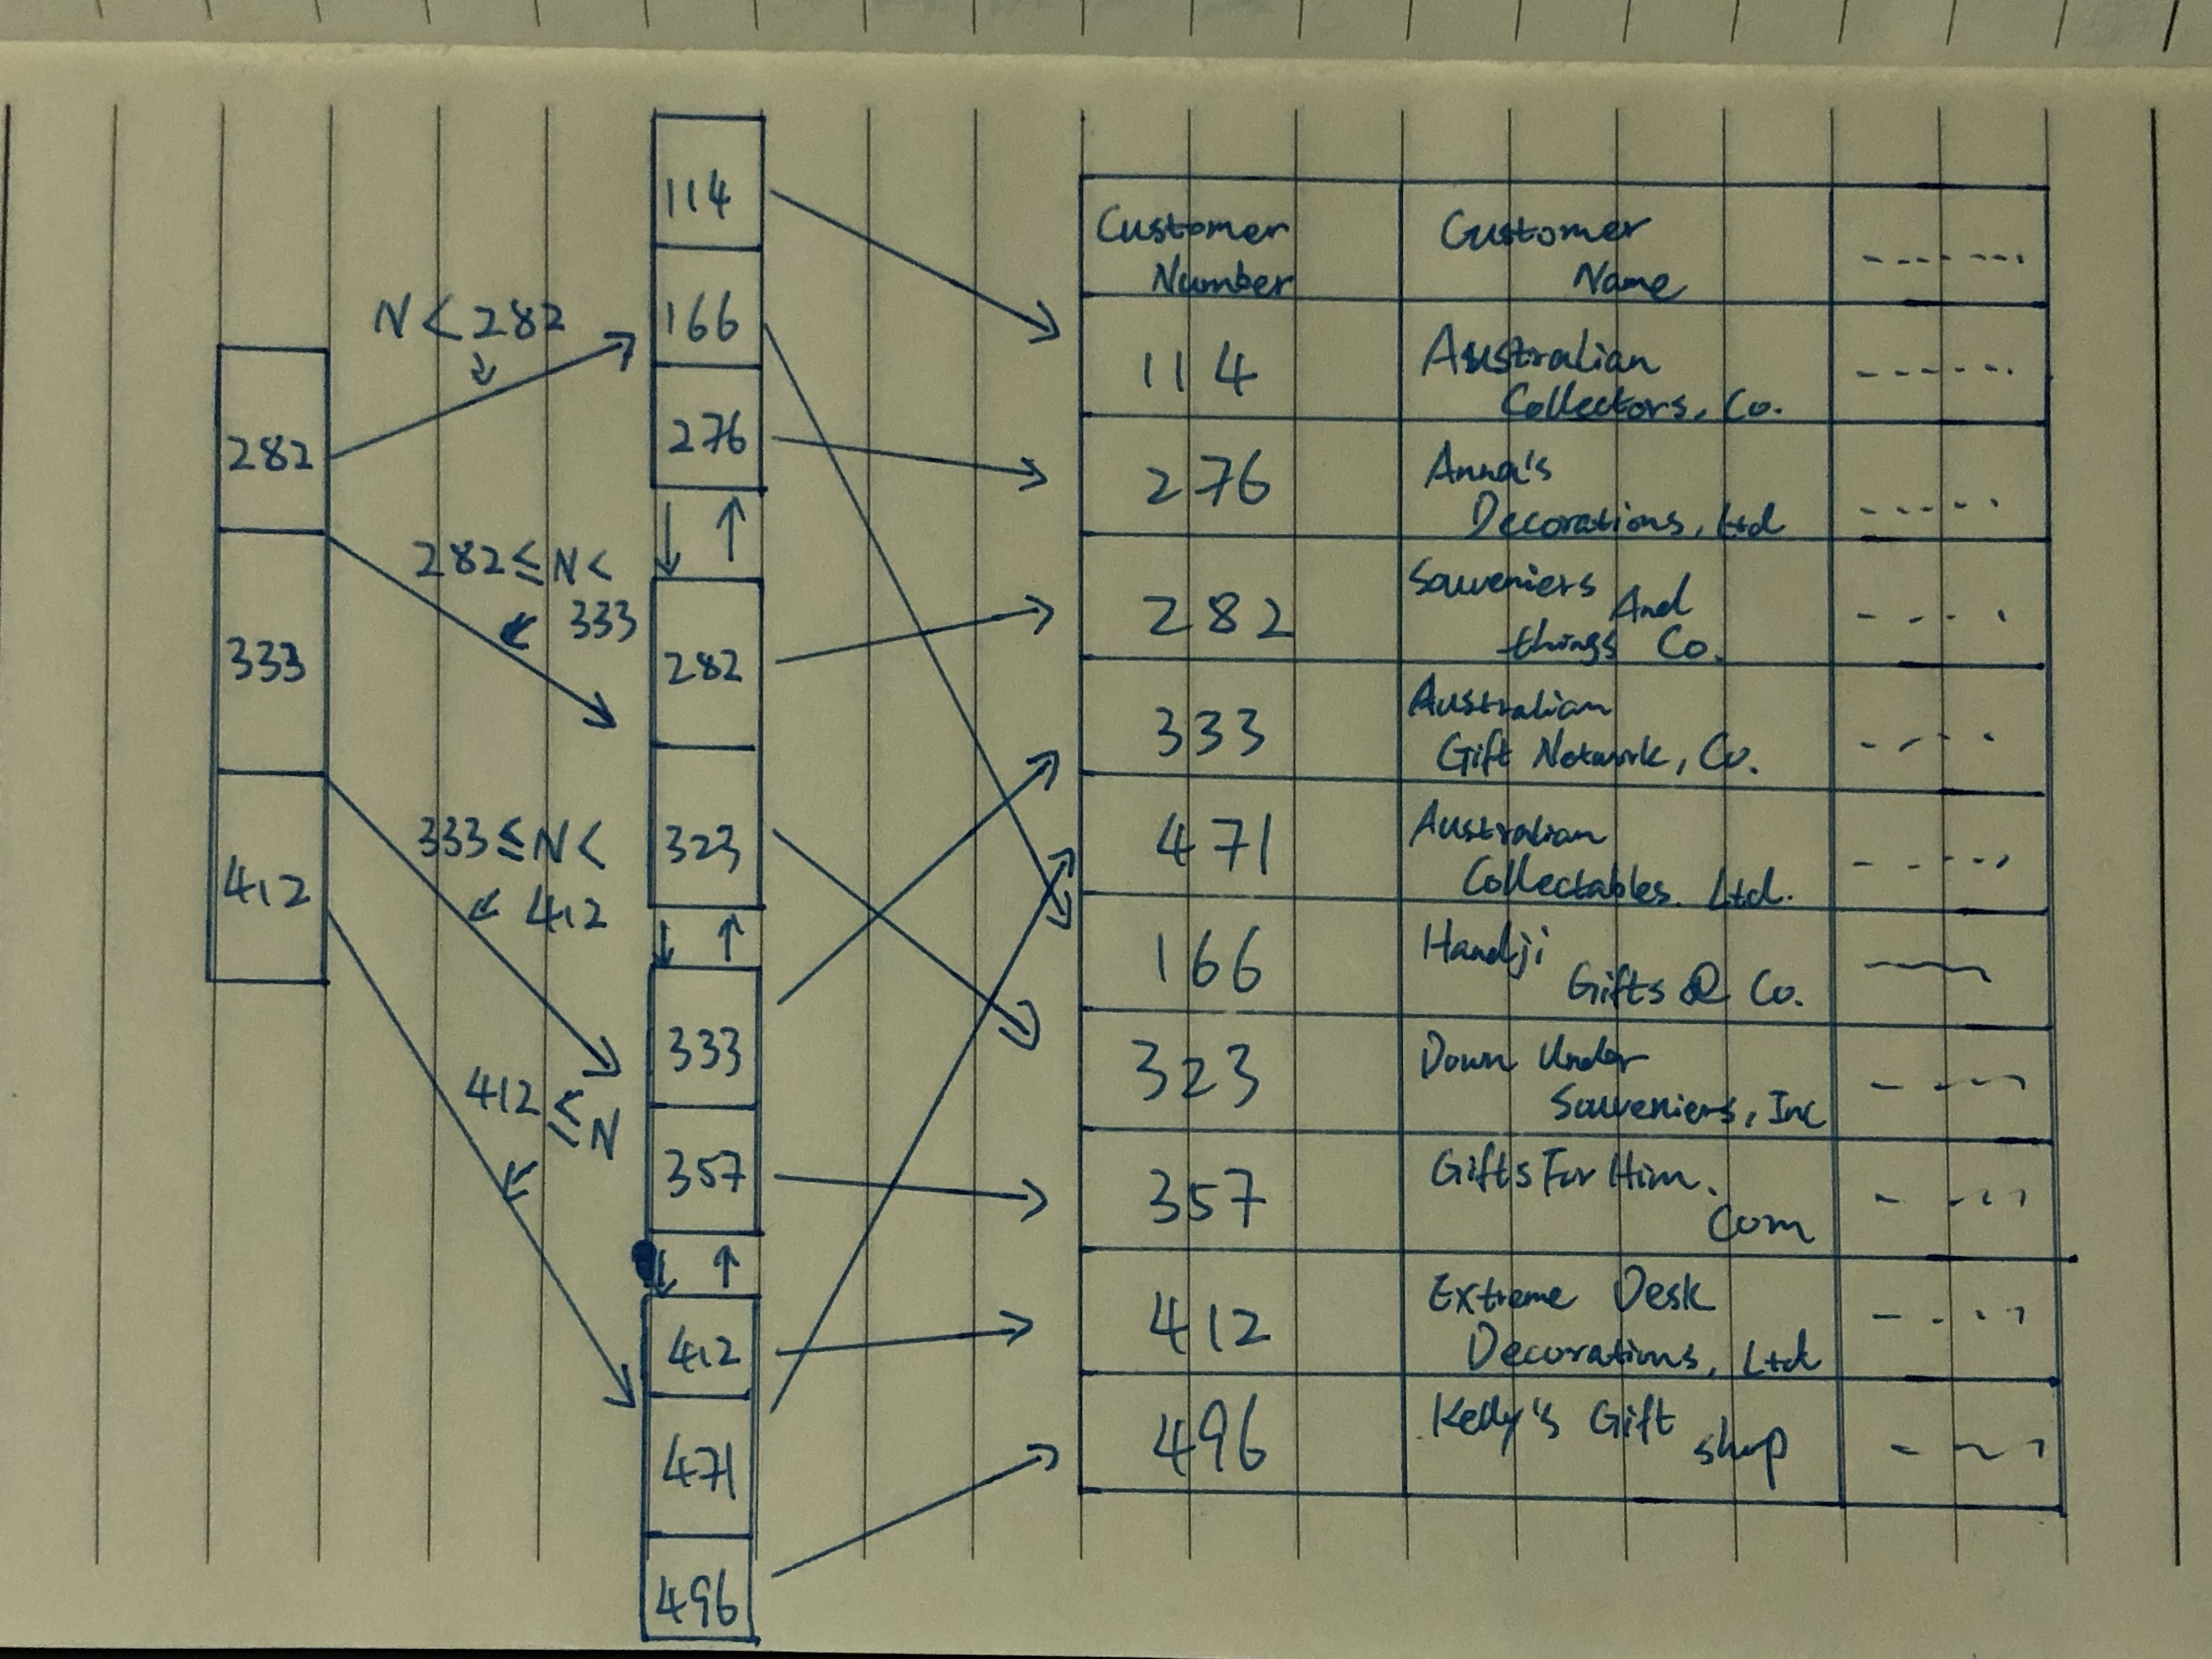 282
333
412
N < 282
282 ≤ N <
333
333 ≤ N <
412
412 ≤
N
114
166
276
282
323
333
357
412
471
496
Customer
Number
Customer
Name
114
Australian
Collectors, Co.
276
Anna's
Decorations, Ltd
282
Souveniers And
things Co.
333
Australian
Gift Network, Co.
471
Australian
Collectables. Ltd.
166
Handji
Gifts & Co.
323
Down Under
Souveniers, Inc
357
Gifts For Him.
Com
412
Extreme Desk
Decorations, Ltd
496
Kelly's Gift
shop